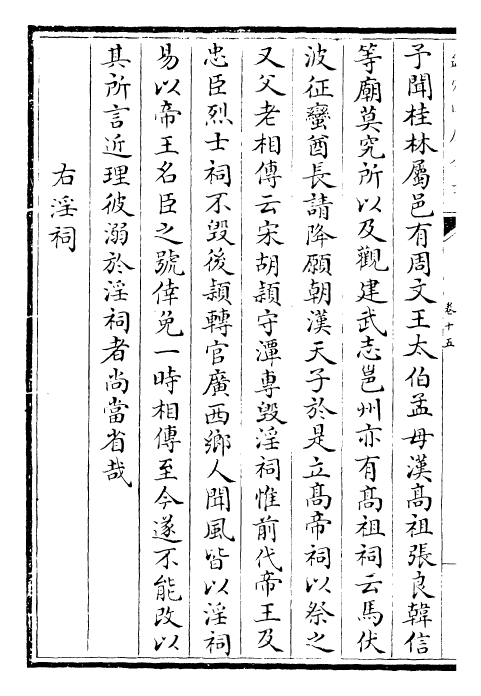 卷十五
予聞桂林屬邑有周文王太伯孟母漢髙祖張良韓信
等廟莫究所以及觀建武志邕州亦有髙祖祠云馬伏
波征蠻酋長請降願朝漢天子於是立髙帝祠以祭之
又父老相傳云宋胡頴守潭専毁淫祠惟前代帝王及
忠臣烈士祠不毁後頴轉官廣西鄉人聞風皆以淫祠
易以帝王名臣之號倖免一時相傳至今遂不能改以
其所言近理彼溺於淫祠者尚當省哉
右淫祠